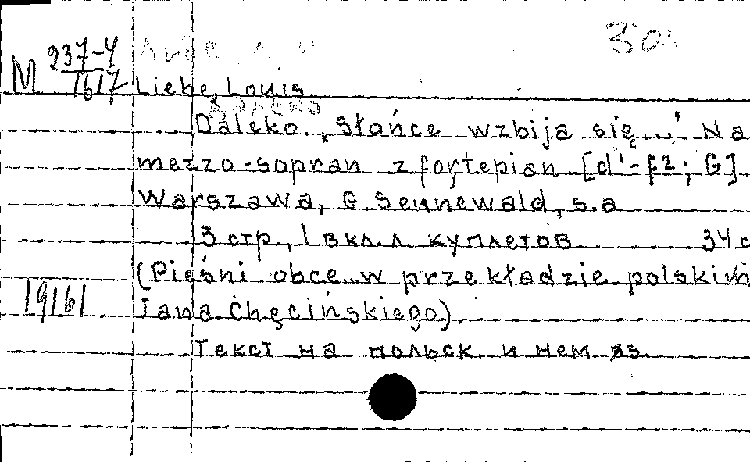 M 237-4
1617
30
Liebe, Louis
Daleko. „Słońce wzbija się..." Na
mezzo-sopran z fortepian [d'-f2; G].
Warszawa, G. Sennewald, s.a
3 стр., 1 вкл.л куплетов 34 с
(Pieśni obce w przekładzie polskim
19161
Jana Chęcińskiego)
Текст на польск и нем яз